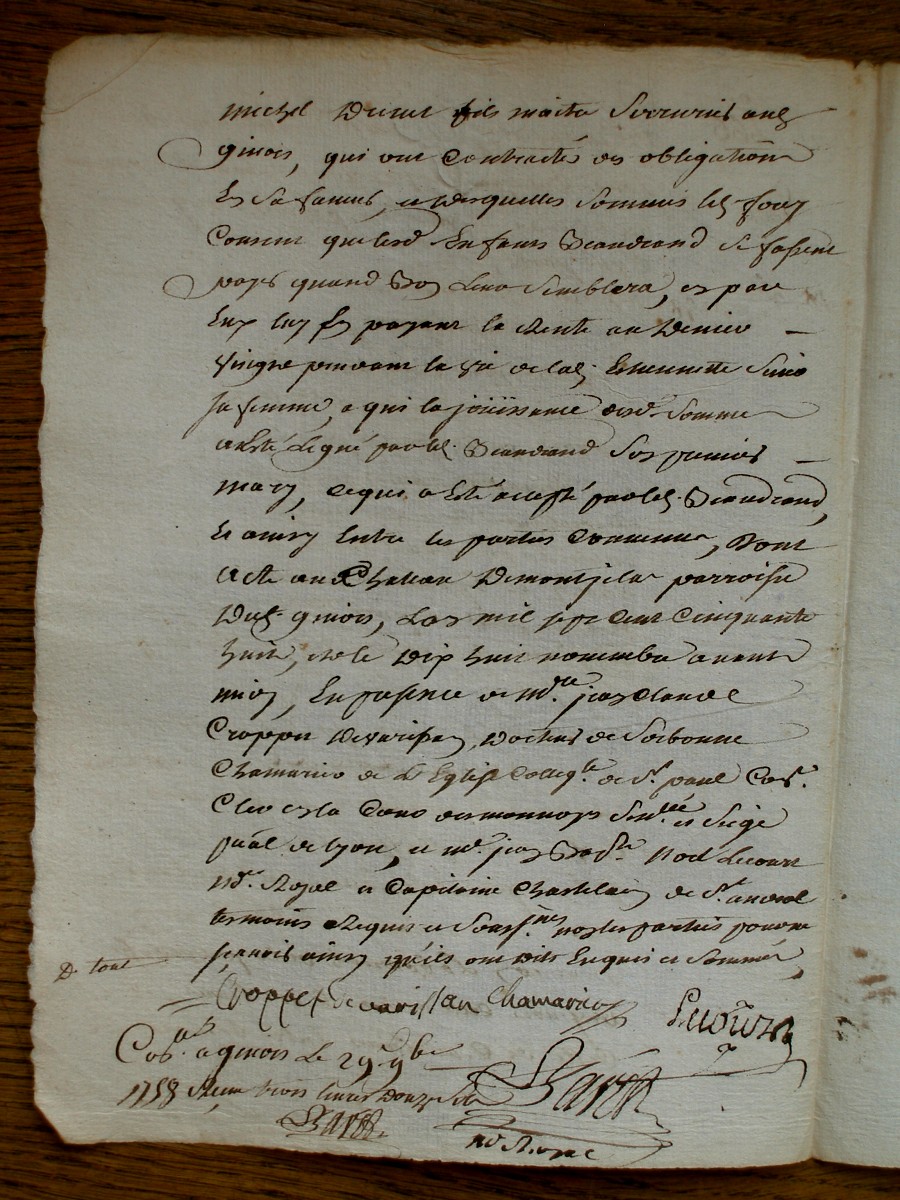 michel Durut fils maitre Serrurier aud.
givors, qui ont Contracté des obligations
En sa faveur, et desquelles sommes led.
Consent que lesd. Enfans Beaudrand se fassent
payer quand Bon Leur Semblera, et par
Eux luy payant la Rente au Denier
Vingt pendant la vie de lad.
sa femme, a qui la joüissance desd. Sommes
a Esté Legué par led. Beaudrand Son premier
mary, ce qui a Esté accepté par led. Beaudrand,
Et ainsy Entre les parties Convenu, Dont
acte au Chateau De montjelas parroisse
Dud. givors, L'an mil sept Cent Cinquante
huit, et le Dix huit novembre avant
midy, En presence de jean Claude
Croppet Devarissan, Docteur de Sorbonne
Chamarier de L'Eglise Colleg.le de S.t paul Con.er
Clerc en la Cour des monnoyes Sen.ée et Siege
p.al de Lyon, et jean Bap.te noel Lecourt
n.re Royal et Capitaine Chastelain de S.t andeol
temoins Requis et Soussignés non les parties pour ne
sçavoir ainsy qu'ils ont dit Enquis et Sommés,
D. tout
Croppet de varissan Chamarier
Lecourt
Con.lé a givors Le 29. 9bre
1758 Reçu trois livres Douze sols